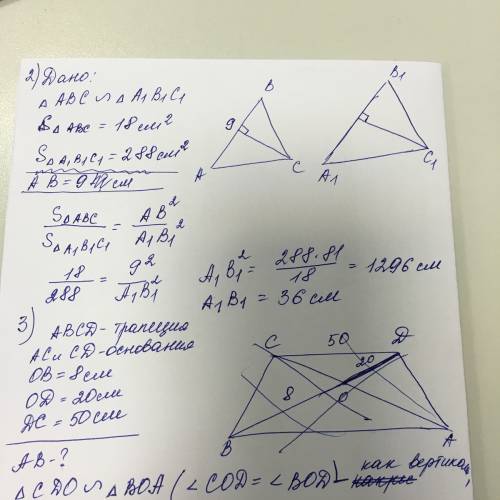 2) Дано:
△ ABC ∽ △ A1B1C1
S△ABC = 18 см²
S△A1B1C1 = 288 см²
AB = 9 см
B
9
A
C
B1
A1
C1
S△ABC / S△A1B1C1 = AB² / A1B1²
18 / 288 = 9² / A1B1²
A1B1² = 288·81 / 18 = 1296 см
A1B1 = 36 см
3)
ABCD - трапеция
AC и CD - основания
OB = 8 см
OD = 20 см
DC = 50 см
AB - ?
C
50
D
20
8
O
B
A
△ CDO ∽ △ BOA ( ∠COD = ∠BOD - как вертикал,